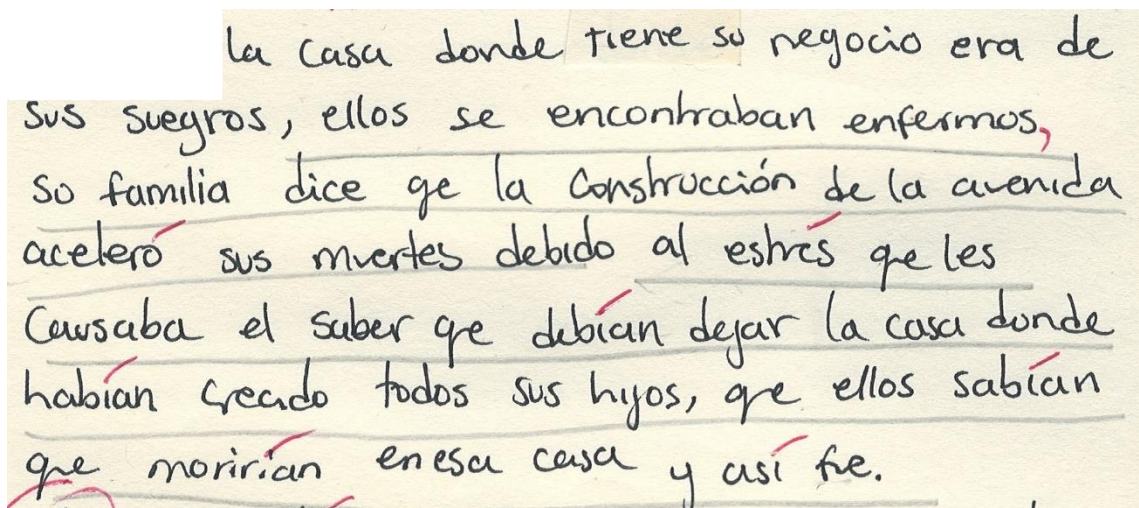 la casa donde tiene su negocio era de
sus suegros, ellos se encontraban enfermos,
su familia dice qe la construcción de la avenida
aceleró sus muertes debido al estrés que les
causaba el saber qe debían dejar la casa donde
habían creado todos sus hijos, que ellos sabían
que morirían en esa casa y así fue.